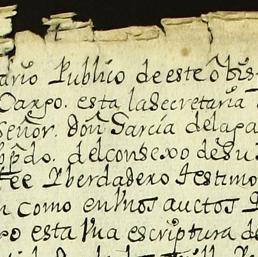 ario Publico de este obis
Cargo. esta la secretaria
señor. don Garcia de la pa
obpdo. del consexo de su
fee y berdadero testimo
n como en unos auctos
ro esta una escriptura de